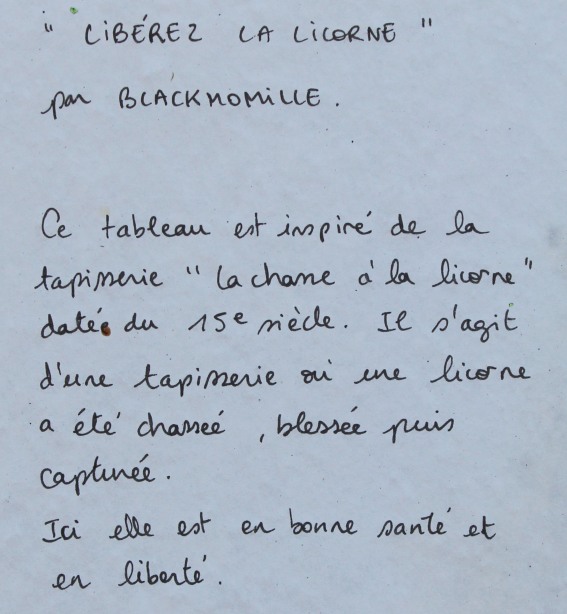 " LIBÉREZ LA LICORNE "
par BLACKMOMILLE.
Ce tableau est inspiré de la
tapisserie "La chasse à la licorne"
datée du 15e siècle. Il s'agit
d'une tapisserie où une licorne
a été chassée, blessée puis
capturée.
Ici elle est en bonne santé et
en liberté.